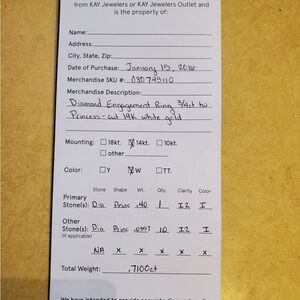 from KAY Jewelers or KAY Jewelers Outlet and
is the property of:
Name:
Address:
City, State, Zip:
Date of Purchase: January 15, 2016
Merchandise SKU #: 080795110
Merchandise Description:
Diamond Engagement Ring 3/4ct tw
Princess-cut 14K white gold
Mounting: 18kt. 14kt. 10kt.
other
Color: Y W TT.
Stone Shape Wt. Qty. Clarity Color
Primary
Stone(s): Dia Princ .40 1 I2 I
Other
Stone(s): Dia Princ 10 I2 I
(if applicable)
NA X X X X X
Total Weight: .7100ct